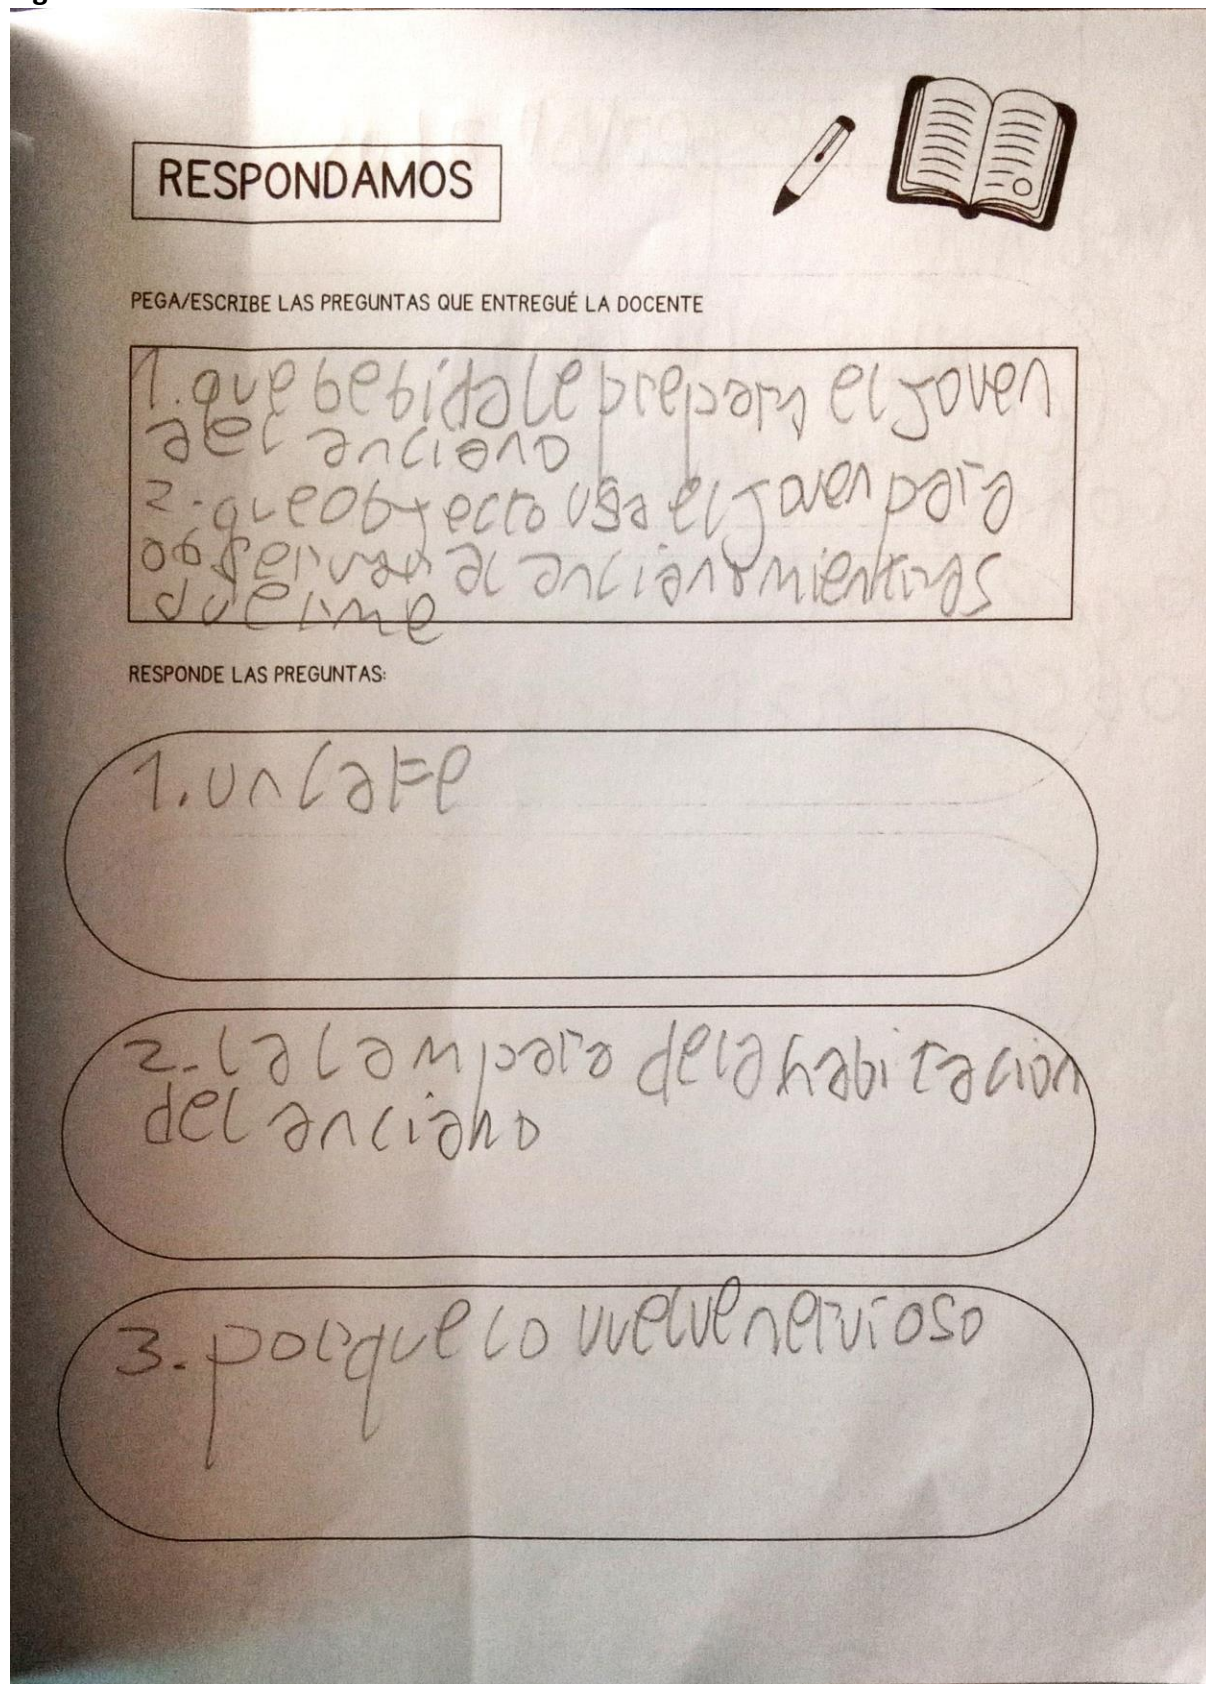 RESPONDAMOS
PEGA/ESCRIBE LAS PREGUNTAS QUE ENTREGUÉ LA DOCENTE
1. que bebida le prepara el joven
ael anciano
2. que objecto usa el joven para
observar al anciano mientras
duerme
RESPONDE LAS PREGUNTAS:
1. un cafe
2. la lampara de la habitacion
del anciano
3. porque lo vuelve nervioso